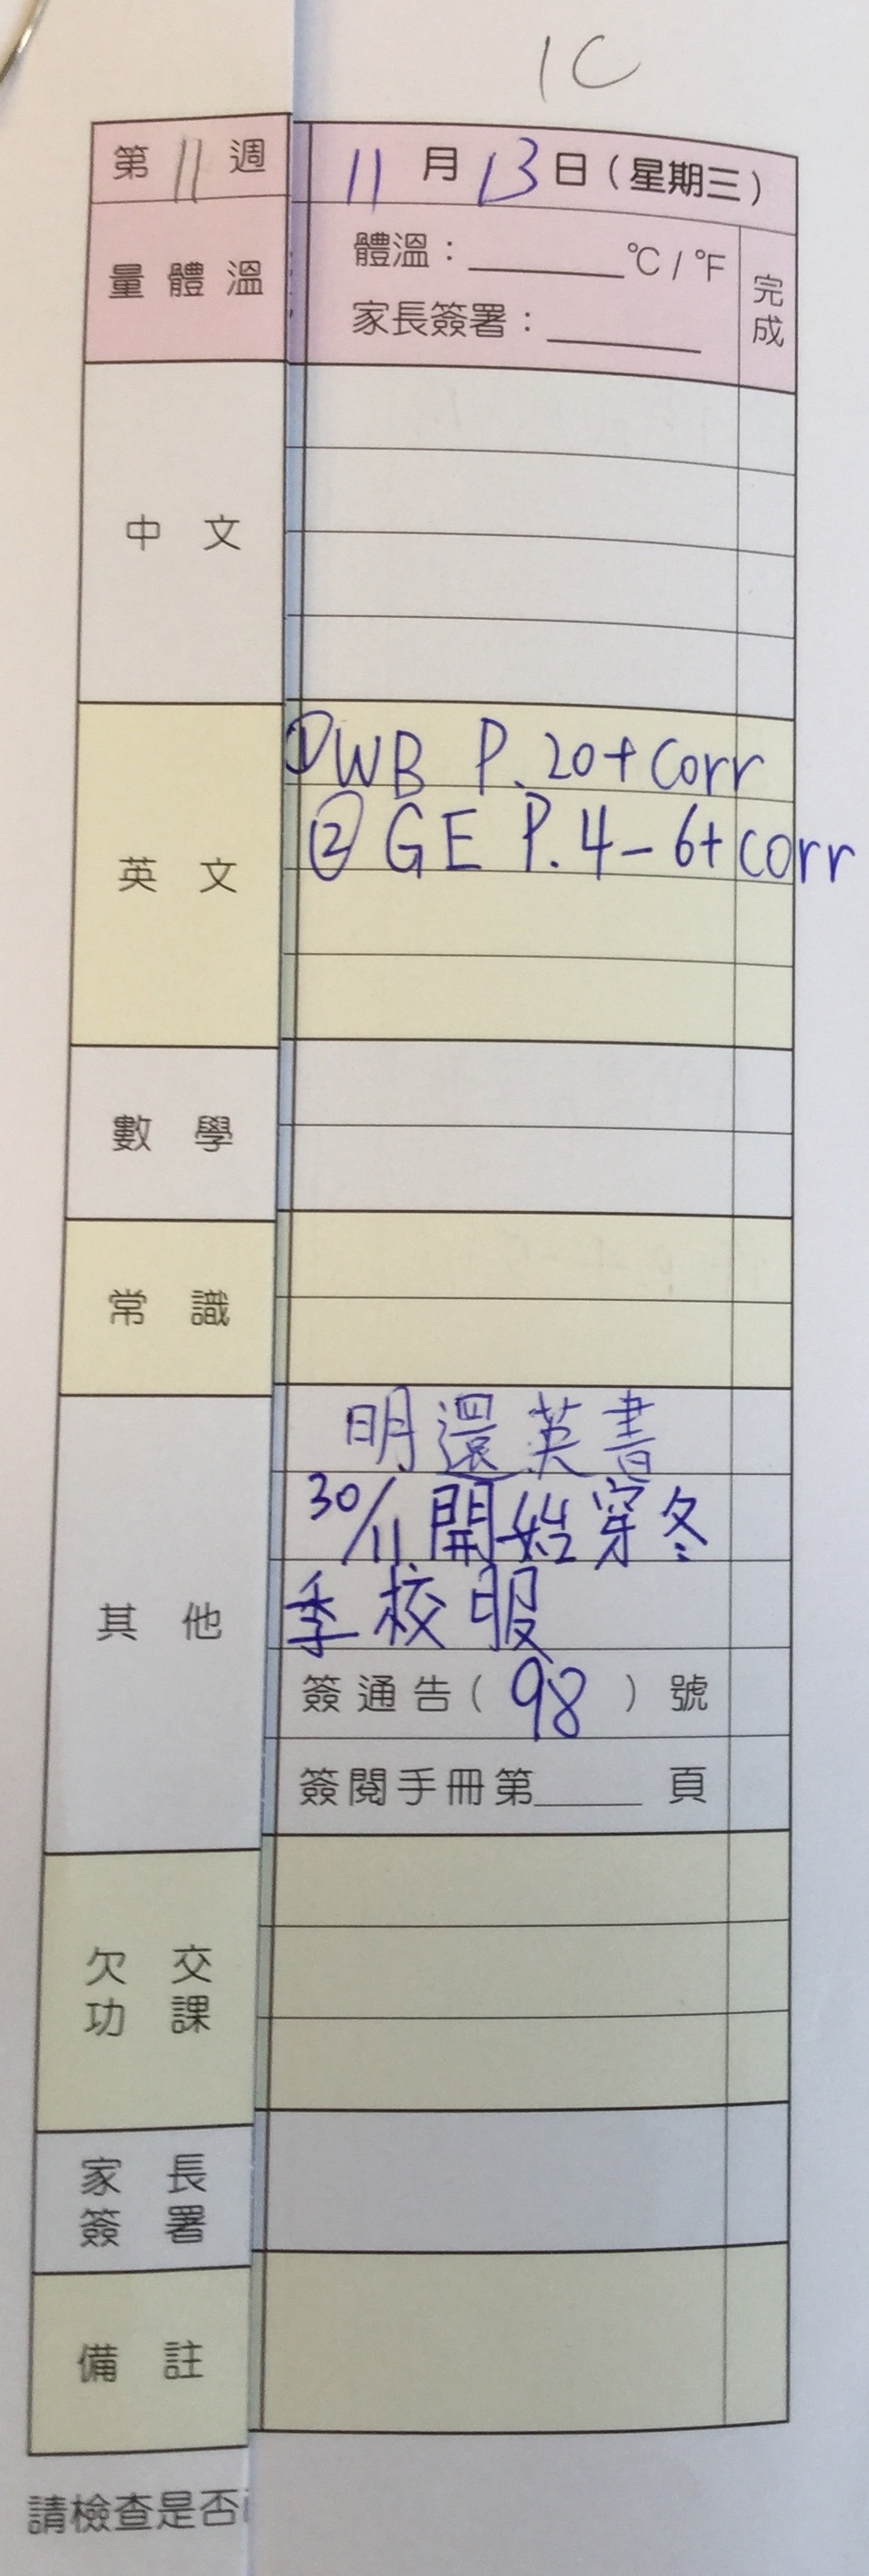 1C
第 11 週 11 月 13 日 ( 星期三 )
量體溫 體溫：______°C / °F 完成
家長簽署：______
中文
英文 ① WB P.20 + Corr
② GE P.4-6 + corr
數學
常識
其他 明還英書
30/11 開始穿冬
季校服
簽通告 ( 98 ) 號
簽閱手冊第______頁
欠交
功課
家長
簽署
備註
請檢查是否